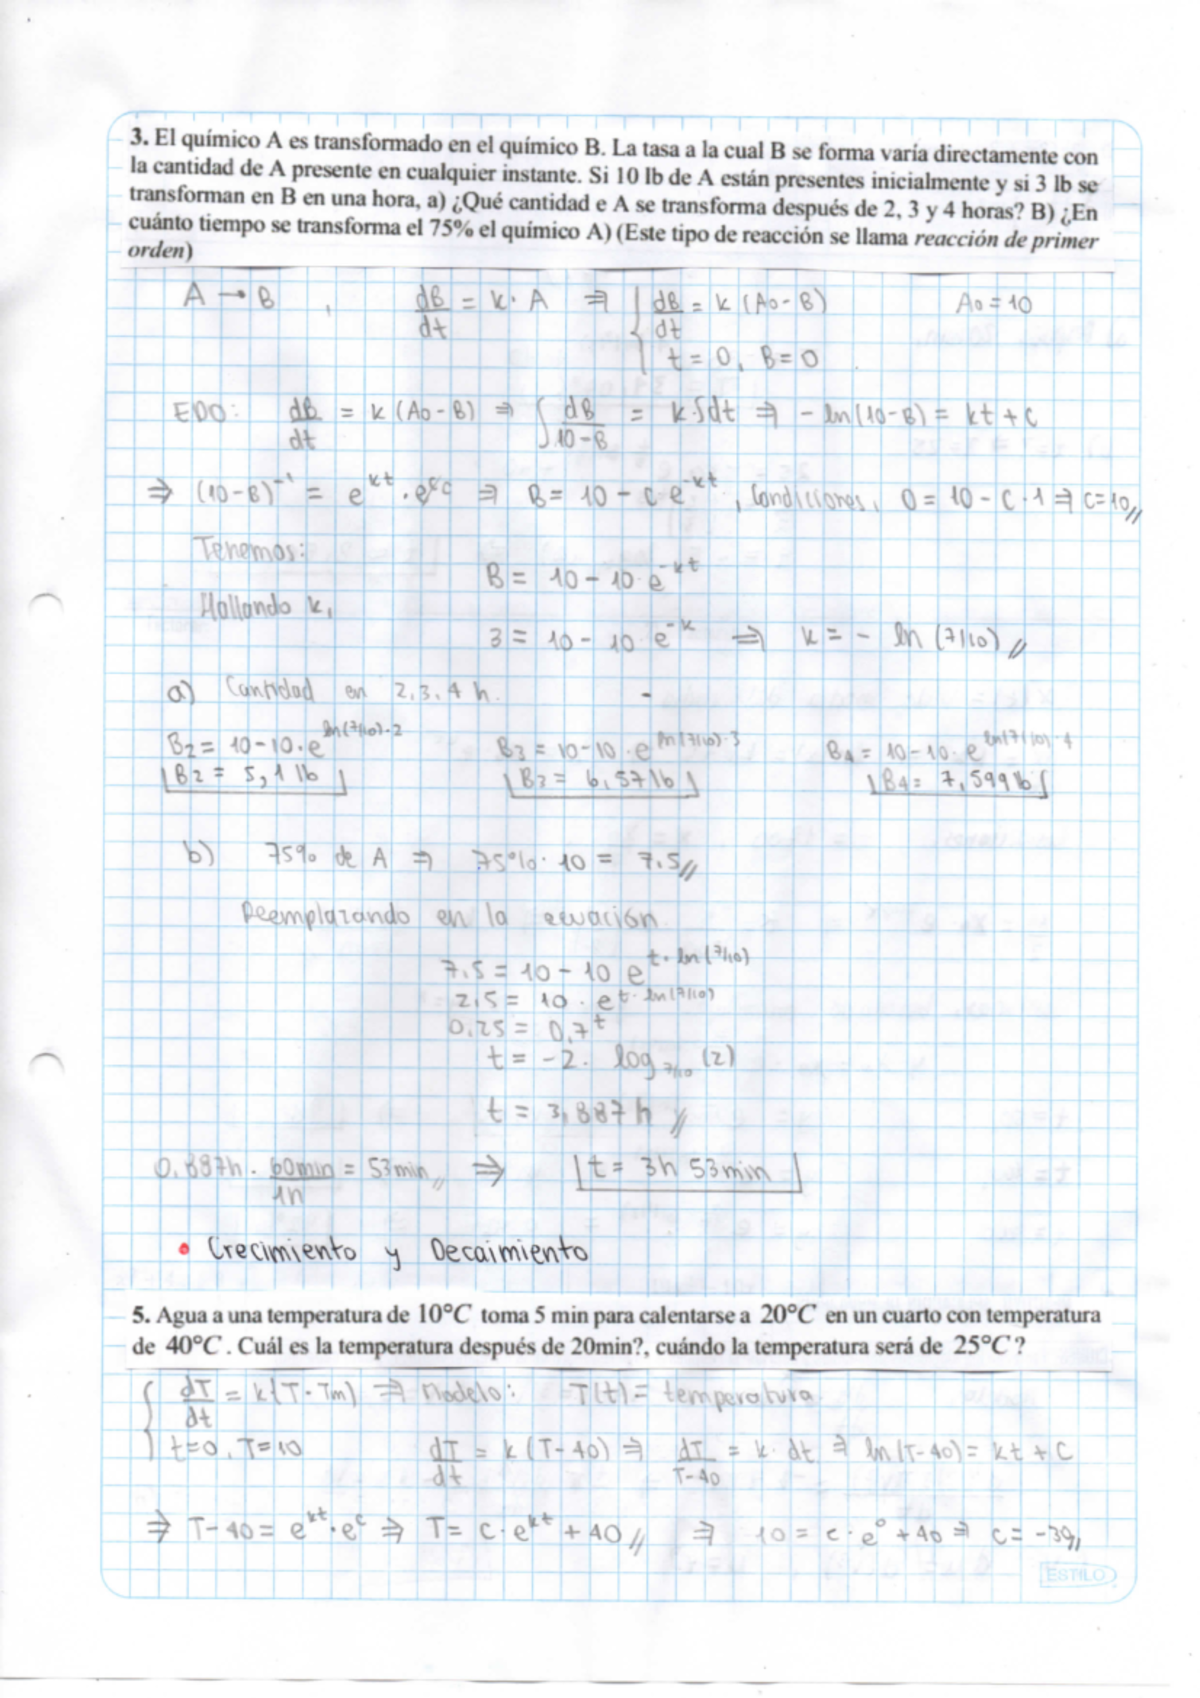 3. El químico A es transformado en el químico B. La tasa a la cual B se forma varía directamente con
la cantidad de A presente en cualquier instante. Si 10 lb de A están presentes inicialmente y si 3 lb se
transforman en B en una hora, a) ¿Qué cantidad e A se transforma después de 2, 3 y 4 horas? B) ¿En
cuánto tiempo se transforma el 75% el químico A) (Este tipo de reacción se llama reacción de primer
orden)
A → B , dB/dt = k · A ⇒ { dB/dt = k (A0 - B) A0 = 10
t = 0, B = 0
EDO: dB/dt = k (A0 - B) ⇒ ∫ dB/10-B = k ∫dt ⇒ - ln(10-B) = kt + C
⇒ (10-B)⁻¹ = e^kt · e^c ⇒ B = 10 - c e^-kt , Condiciones, 0 = 10 - C · 1 ⇒ C = 10 //
Tenemos:
B = 10 - 10 · e^-kt
Hallando k,
3 = 10 - 10 e^-k ⇒ k = - ln (7/10) //
a) Cantidad en 2, 3, 4 h.
B2 = 10-10·e^ln(7/10)·2 B3 = 10-10·e^ln(7/10)·3 B4 = 10-10·e^ln(7/10)·4
B2 = 5,1 lb B3 = 6,57 lb B4 = 7,599 lb
b) 75% de A ⇒ 75% · 10 = 7.5 //
Reemplazando en la ecuación.
7,5 = 10 - 10 e^t·ln(7/10)
2,5 = 10 · e^t·ln(7/10)
0,25 = 0,7^t
t = -2 · log 7/10 (2)
t = 3,887 h //
0,887h · 60min/1h = 53 min // ⇒ t = 3h 53min
• Crecimiento y Decaimiento
5. Agua a una temperatura de 10°C toma 5 min para calentarse a 20°C en un cuarto con temperatura
de 40°C . Cuál es la temperatura después de 20min?, cuándo la temperatura será de 25°C ?
{ dT/dt = k(T - Tm) ⇒ Modelo: T(t) = temperatura
t=0, T=10 dT/dt = k (T-40) ⇒ dT/T-40 = k · dt ⇒ ln(T-40) = kt + C
⇒ T-40 = e^kt · e^c ⇒ T = c · e^kt + 40 // ⇒ 10 = c · e^0 + 40 ⇒ c = -30 //
ESTILO